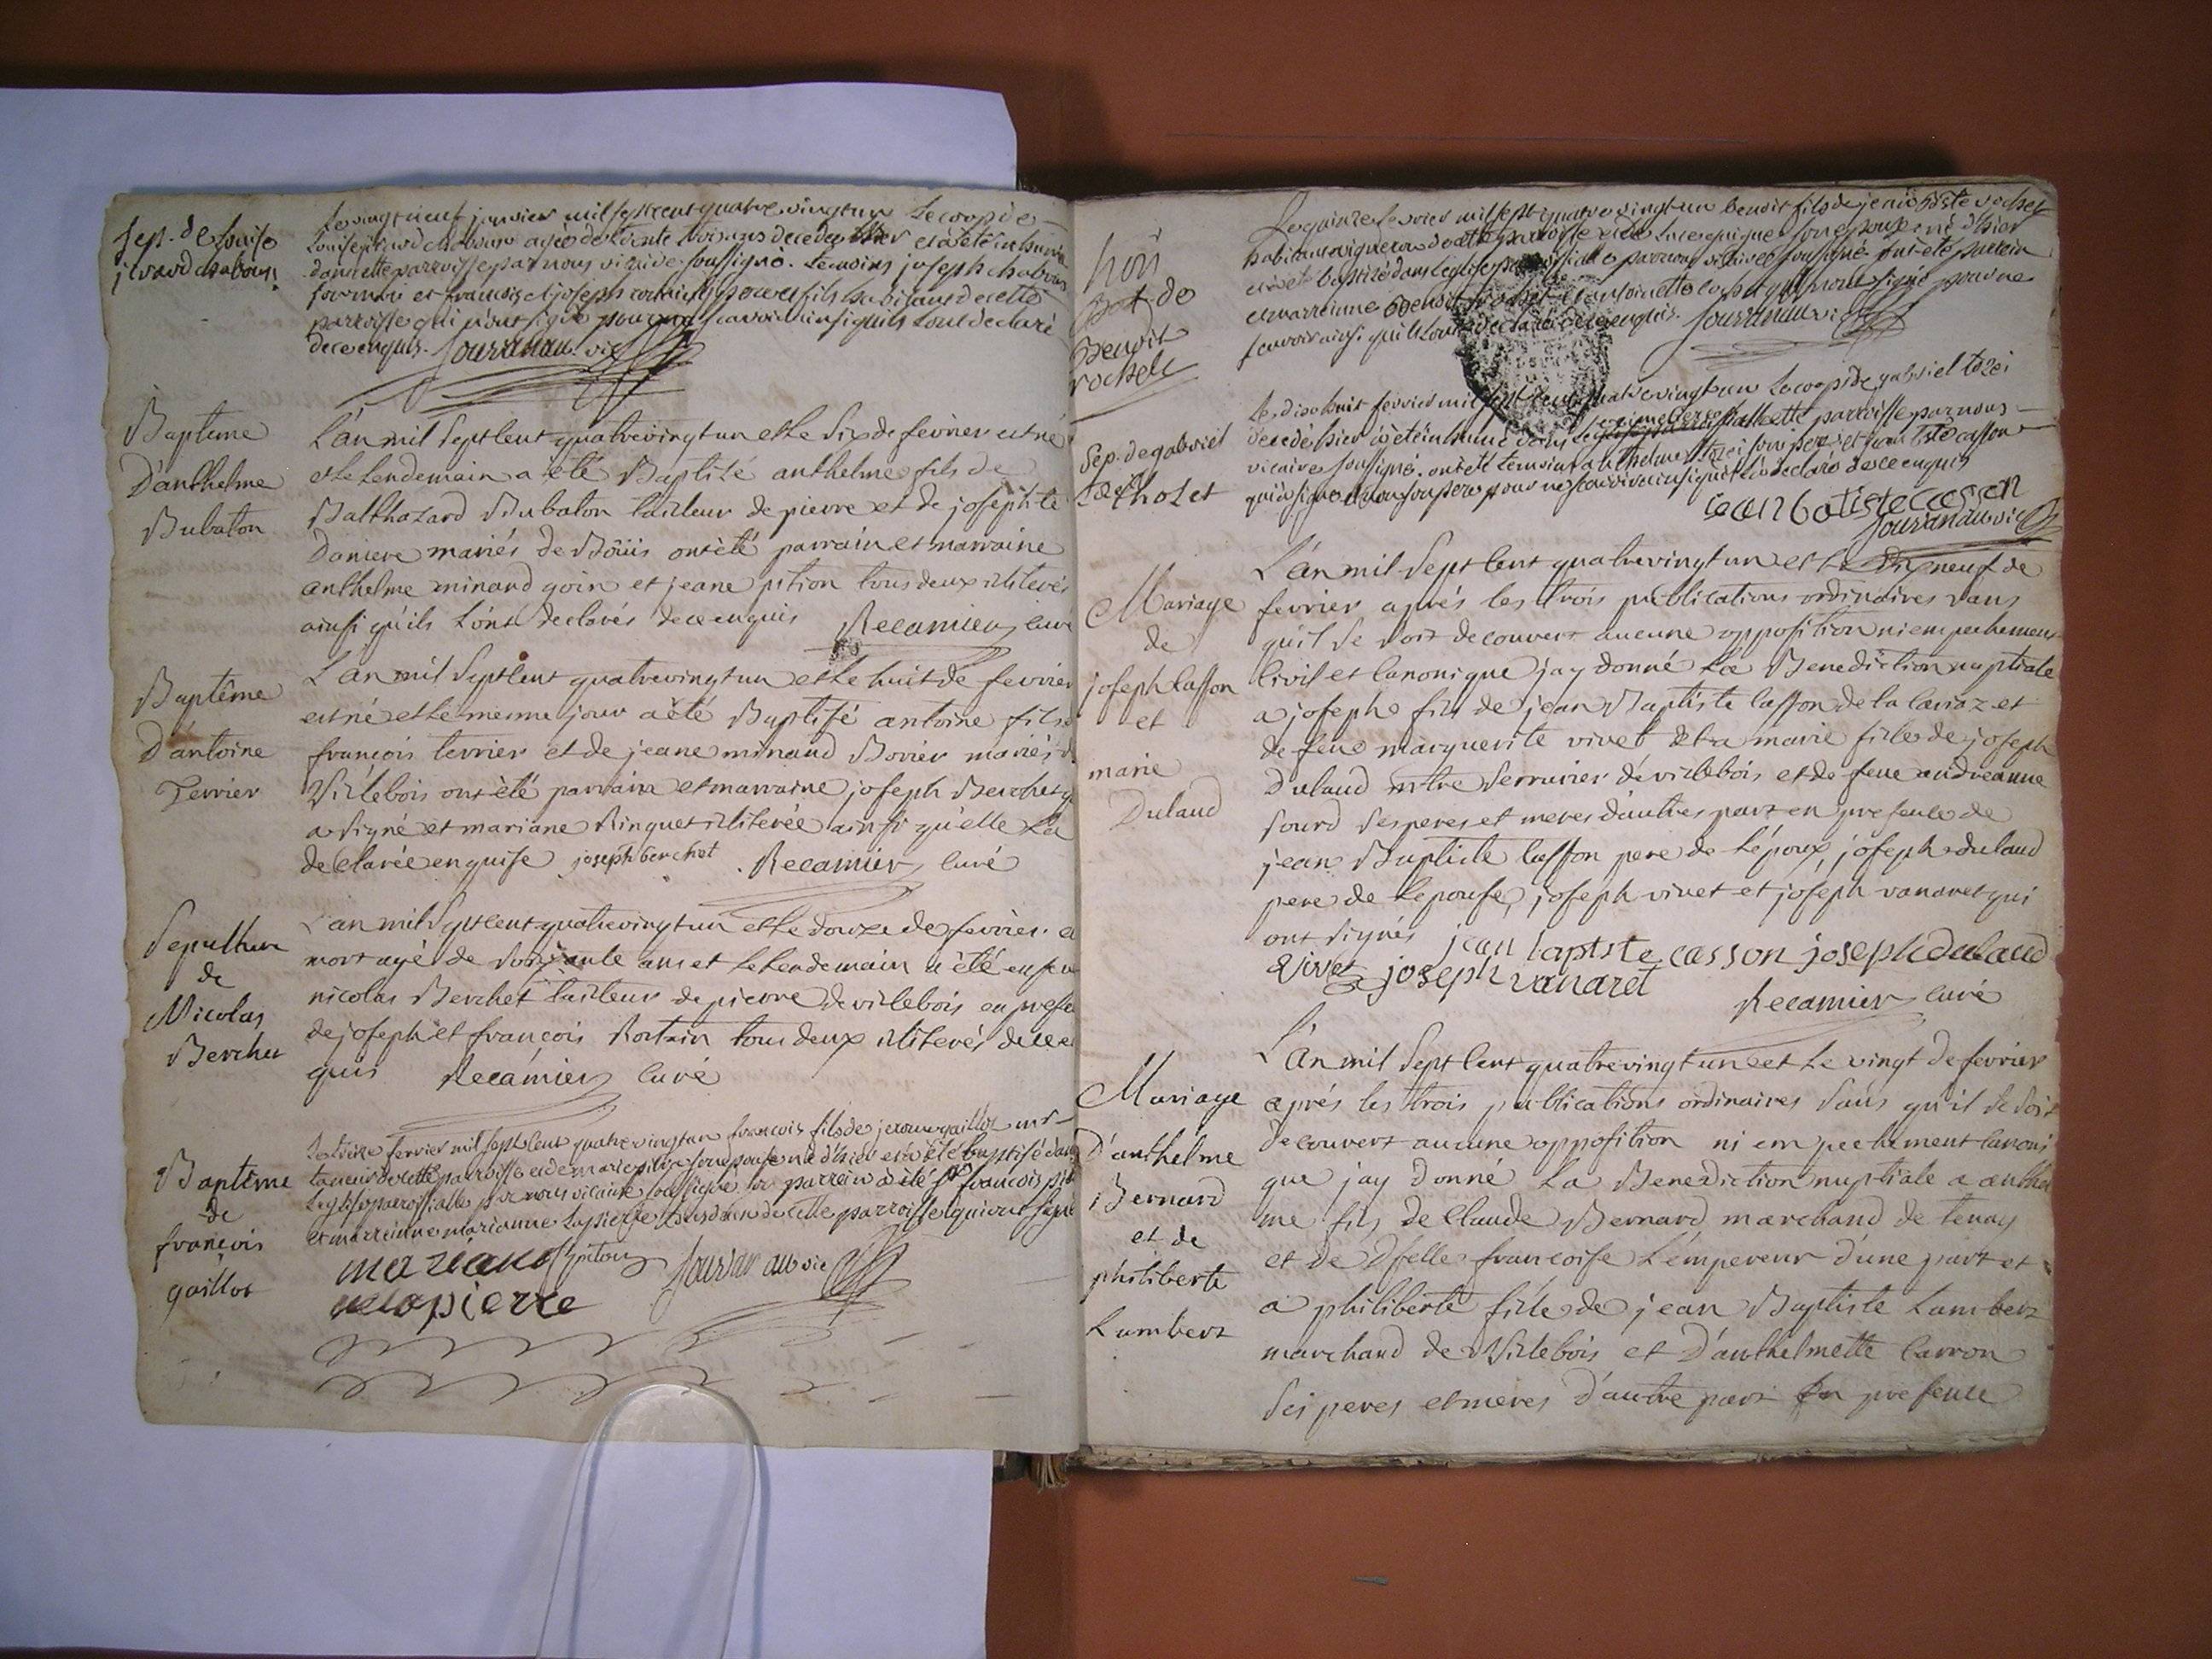 Sep. de Louise
jirard chabour
Le vingt neuf janvier mil sept cent quatre vingt un le corps de
Louise jirard chabour agée de trente trois ans decedée hier et a été inhumé
dans cette parroisse par nous vicaire soussigné. temoins joseph chabour
son mari et francois et joseph pere et fils habitans de cette
parroisse qui n'ont signé pour ne scavoir ainsi qu'ils l'ont declaré
de ce enquis. Jouvanau vic
Baptême
D'anthelme
Bubaton
L'an mil sept cent quatrevingt un et le six de fevrier est né
et le lendemain a été Baptisé anthelme fils de
Balthazard Bubaton tailleur de pierre et de joseph te
Daniere mariés de Bouis ont été parrain et marraine
anthelme minand goin et jeane pition tous deux illiterés
ainsi qu'ils l'ont declarés de ce enquis Recamier curé
Baptême
D'antoine
Terrier
L'an mil sept cent quatrevingt un et le huit de fevrier
est né et le meme jour a été Baptisé antoine fils
françois terrier et de jeane minand Borier mariés
Villebois ont été parrain et marraine joseph Berchet
a signé et mariane Ringuet illiterée ainsi qu'elle l'a
declarée enquise joseph berchet Recamier curé
Sepulture
de
Nicolas
Berchet
L'an mil sept cent quatrevingt un et le douze de fevrier
mort agé de soixante ans et le lendemain a été ense
nicolas Berchet tailleur de pierre de villebois en prese
de joseph et françois Rostain tous deux illiterés de ce e
quis Recamier curé
Baptême
de
françois
gaillot
Le treize fevrier mil sept cent quatre vingt un francois fils de jerome gaillot mr
taneur de cette parroisse et de marie pitiou son epouse né d'hier et a été baptisé dans
l'eglise parroissialle par nous vicaire soussigné le parrein a été sr francois
et marreinne marianne lapierre tous deux de cette parroisse qui ont signé
mariane f pitiou Jouvanau vic
delapierre
hon
Bat. de
Benoit
rochet
Le quinze fevrier mil sept quatre vingt un benoit fils de jean bâste rochet
habitant vigneron de cette parroisse et de son epouse né d'hier
et a été baptisé dans l'eglise parroissialle par nous vicaire soussigné ont été parrein
et marreinne benoit rochet et antoinette qui n'ont signé pour ne
scavoir ainsi qu'ils l'ont declaré de ce enquis. Jouvanau vic
Sep. de gabriel
thozet
Le dix huit fevrier mil sept cent quatre vingt un le corps de gabriel tozei
decedé hier a été inhumé dans le cimetiere de cette parroisse par nous
vicaire soussigné. ont été temoins anthelme tozei son pere et jean bste casson
qui a signé et non son pere pour ne scavoir ainsi qu'il l'a declaré de ce enquis
jean batiste casson
Jouvanau vic
Mariage
de
joseph Casson
et
marie
Dulaud
L'an mil sept cent quatrevingt un et le Dix neuf de
fevrier aprés les trois publications ordinaires sans
qu'il se soit decouvert aucune opposition ni empechement
civil et canonique jay donné la Benediction nuptiale
a joseph fils de jean Baptiste casson de la caviaz et
de feue marguerite vivet et a marie fille de joseph
Dulaud mtre serrurier de villebois et de feue andreanne
sourd ses peres et meres d'autres part en presence de
jean Baptiste casson pere de l'époux, joseph dulaud
pere de l'epouse, joseph vivet et joseph vanaret qui
ont signés jean baptste casson joseph dulaud
vivet joseph vanaret
Recamier curé
Mariage
D'anthelme
Bernard
et de
philiberte
Lambert
L'an mil sept cent quatrevingt un et le vingt de fevrier
aprés les trois publications ordinaires sans qu'il se soit
decouvert aucune opposition ni empechement canoni
que jay donné la Benediction nuptiale a anthel
me fils de Claude Bernard marchand de tenay
et de Dselle françoise l'empereur d'une part et
a philiberte fille de jean Baptiste Lambert
marchand de Villebois et D'anthelmette Carron
ses peres et meres d'autre part En presence